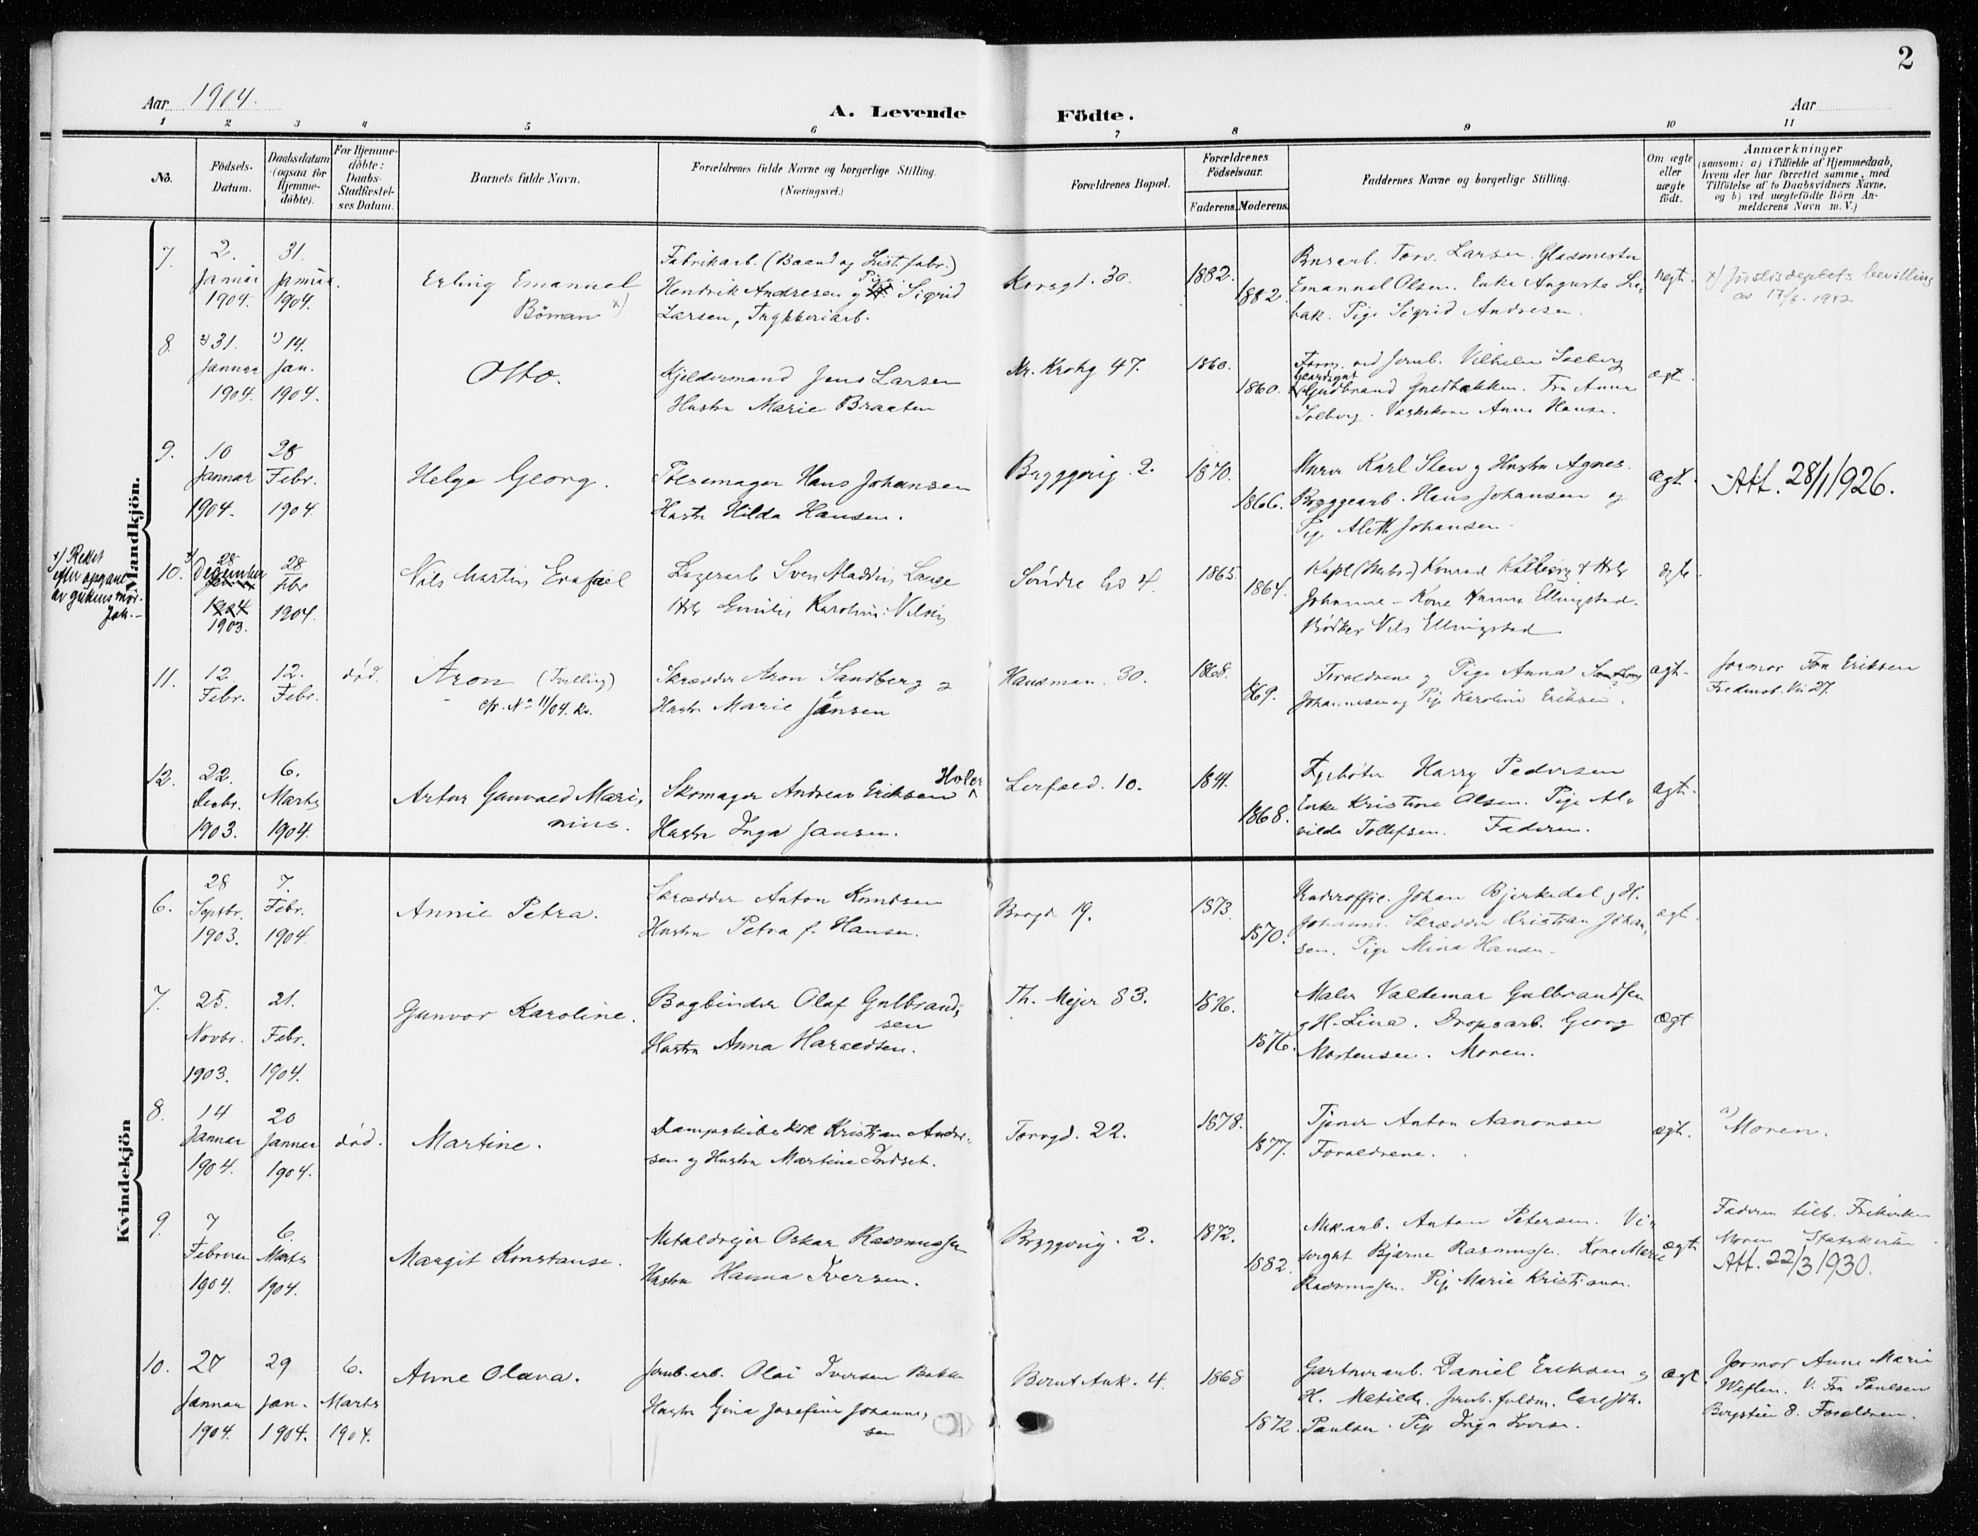 2
Aar 1904.
A. Levende Födte.
Aar
1 2 3 4 5 6 7 8 9 10 11
No.
Födsels-Datum.
Daabsdatum (ogsaa for Hjemme-döbte).
For Hjemme-döbte: Daabs-Stadfæstel-ses Datum.
Barnets fulde Navn.
Forældrenes fulde Navne og borgerlige Stilling.
(Næringsvei.)
Forældrenes Bopæl.
Forældrenes Födselsaar.
Faderens. Moderens.
Faddernes Navne og borgerlige Stilling.
Om ægte eller uægte födt.
Anmærkninger
(saasom: a) i Tilfælde af Hjemmedaab,
hvem der har forrettet samme, med
Tilföielse af to Daabsvidners Navne,
og b) ved uægtefödte Börn An-
melderens Navn m. V.)
Mandkjön.
7. 2. Januar 1904. 31. Januar 1904.
Erling Emanuel
Böman x)
Fabrikarb. (Baand og List.fabr.)
Hendrik Andresen og Pige Sigrid
Larsen, Trykkeriarb.
Korsgd. 30. 1882. 1882.
Larsen. Glasmester
Emanuel Olsen. Enke Augusta
Pige Sigrid Andresen.
uegt.
x) Justisdeptets bevilling
av 17/6 1912
8. x) 31. Januar 1904. x) 14. Jan. 1904.
Otto.
Kjeldermand Jens Larsen
Hustru Marie Braaten
Kr. Krohg 47. 1860. 1860.
ved Jernb. Vilhelm Solberg
Gudbrand Fru Anna
Solberg. Vaskekone Anne Hansen.
ægt.
9. 10 Januar 1904. 28 Febr. 1904.
Helge Georg.
Pølsemager Hans Johansen
Hustr Hilda Hansen.
Bryggerig. 2. 1870. 1866.
Murer Karl Steen og Hustru Agnes.
Bryggearb. Hans Johansen og
Pige Aleth Johansen.
ægt.
Att. 28/1 1926.
x) Rettet
efter opgave
av gutens mor.
10. x) 28 December 1904 1903. 28 Febr 1904.
Nils Martin Enfael
Lagerarb Sven Lange
Hstr Emilie Karoline Nilsen
Søndre 4. 1865. 1864.
Konrad Kalberg & Hstr
Johanne - Kone Hanna Ellingstad.
Bödker Nils Ellingstad
ægte
11. 12. Febr. 12. Febr. död.
Aron (Tvilling)
cfr. No 11/04. kv.
Skrædder Aron Sandberg og
Hustr Marie Jansen
Hausman. 30. 1868. 1869.
Forældrene og Pige Anna
Johannesen og Pige Karoline Eriksen.
ægt.
Jormor Fru Eriksen
Fredensb. Vei 27.
12. 22. Decbr. 1903. 6. Marts 1904.
Artur Gunvald Mari-
nius.
Skomager Andreas Eriksen Holer
Hustr Inga Jansen.
Lerfald. 10. 1841. 1868.
Fyrbøter Harry Pedersen
Enke Kristine Olsen. Pige Al-
vilde Tollefsen. Faderen.
ægt.
Kvindekjön
6. 28 Septbr. 1903. 7. Febr. 1904.
Annie Petra.
Skrædder Anton Knudsen
Hustru Petra f. Hansen.
Brogd 19. 1873. 1870.
Underoffic. Johan Bjerkedal og H.
Johanne. Skrædder Kristian Johan-
sen. Pige Mina Hansen.
ægt.
7. 25. Novbr. 1903. 21. Febr. 1904.
Gunvor Karoline.
Bogbinder Olaf Gulbrand-
sen
Hustru Anna Haraldsen.
Th. Mejer 83. 1876. 1876.
Maler Valdemar Gulbrandsen
og H. Lina. Dropsarb. Georg
Mortensen. Moren.
ægt
8. 14 Januar 1904. 20 Januar 1904. död.
Martine.
Dampskibskok Kristian Andre-
sen og Hustru Martine Indset.
Torvgd. 22. 1878. 1877.
Tjener Anton Aanonsen
Forældrene.
ægt.
a) Moren.
9. 7 Februar 1904. 6. Marts 1904.
Margit Konstanse.
Metaldreier Oskar Rasmussen
Hustru Hanna Iversen.
Bryggerig. 2. 1872. 1882.
Mek.arb. Anton Petersen. Vi-
Bjarne Rasmussen. Kone Marie
Rasmussen. Pige Marie Kristiansen.
ægt.
Faderen tilh. Frikirken
Moren Statskirken.
Att. 22/3 1930.
10. 27 Januar 1904. 29 Jan. 1904. 6. Marts 1904.
Anne Olava.
Jernb.arb. Olai Iversen Bakke
Hustru Gina Josefine Johannes-
sen
Bernt Ank. 4. 1868 1872
Gartnerarb. Daniel Eriksen og
H. Matilde. Jernb. fuldm. Carl Joh.
Paulsen. Pige Inga Iversen.
ægt.
Jormor Anne Marie
V. Fru Paulsen
Bergstien 8. Forældrene.